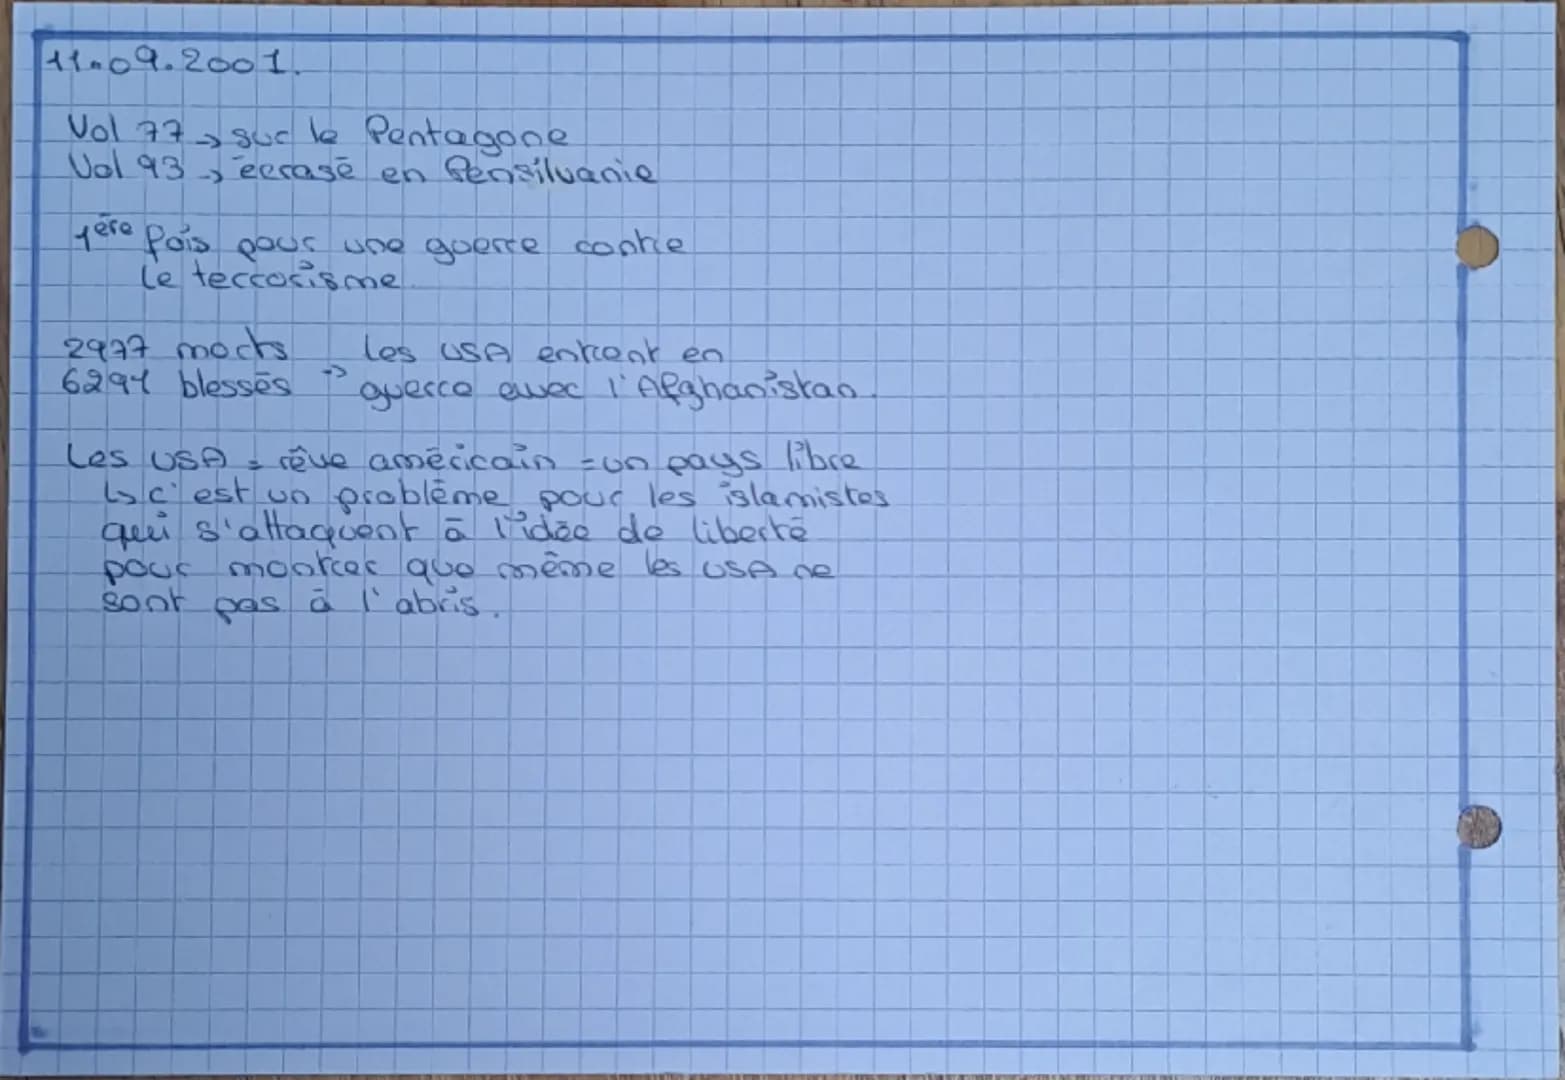 11.09.2001.
Vol 77 → sur le Pentagone
Vol 93 → écrasé en Pensilvanie
1ère fois pour une guerre contre
le terrorisme.
2977 morts les USA entrent en
6291 blessés → guerre avec l'Afghanistan.
Les USA = rêve américain = un pays libre
↳ c'est un problème pour les islamistes
qui s'attaquent à l'idée de liberté
pour montrer que même les USA ne
sont pas à l'abris.